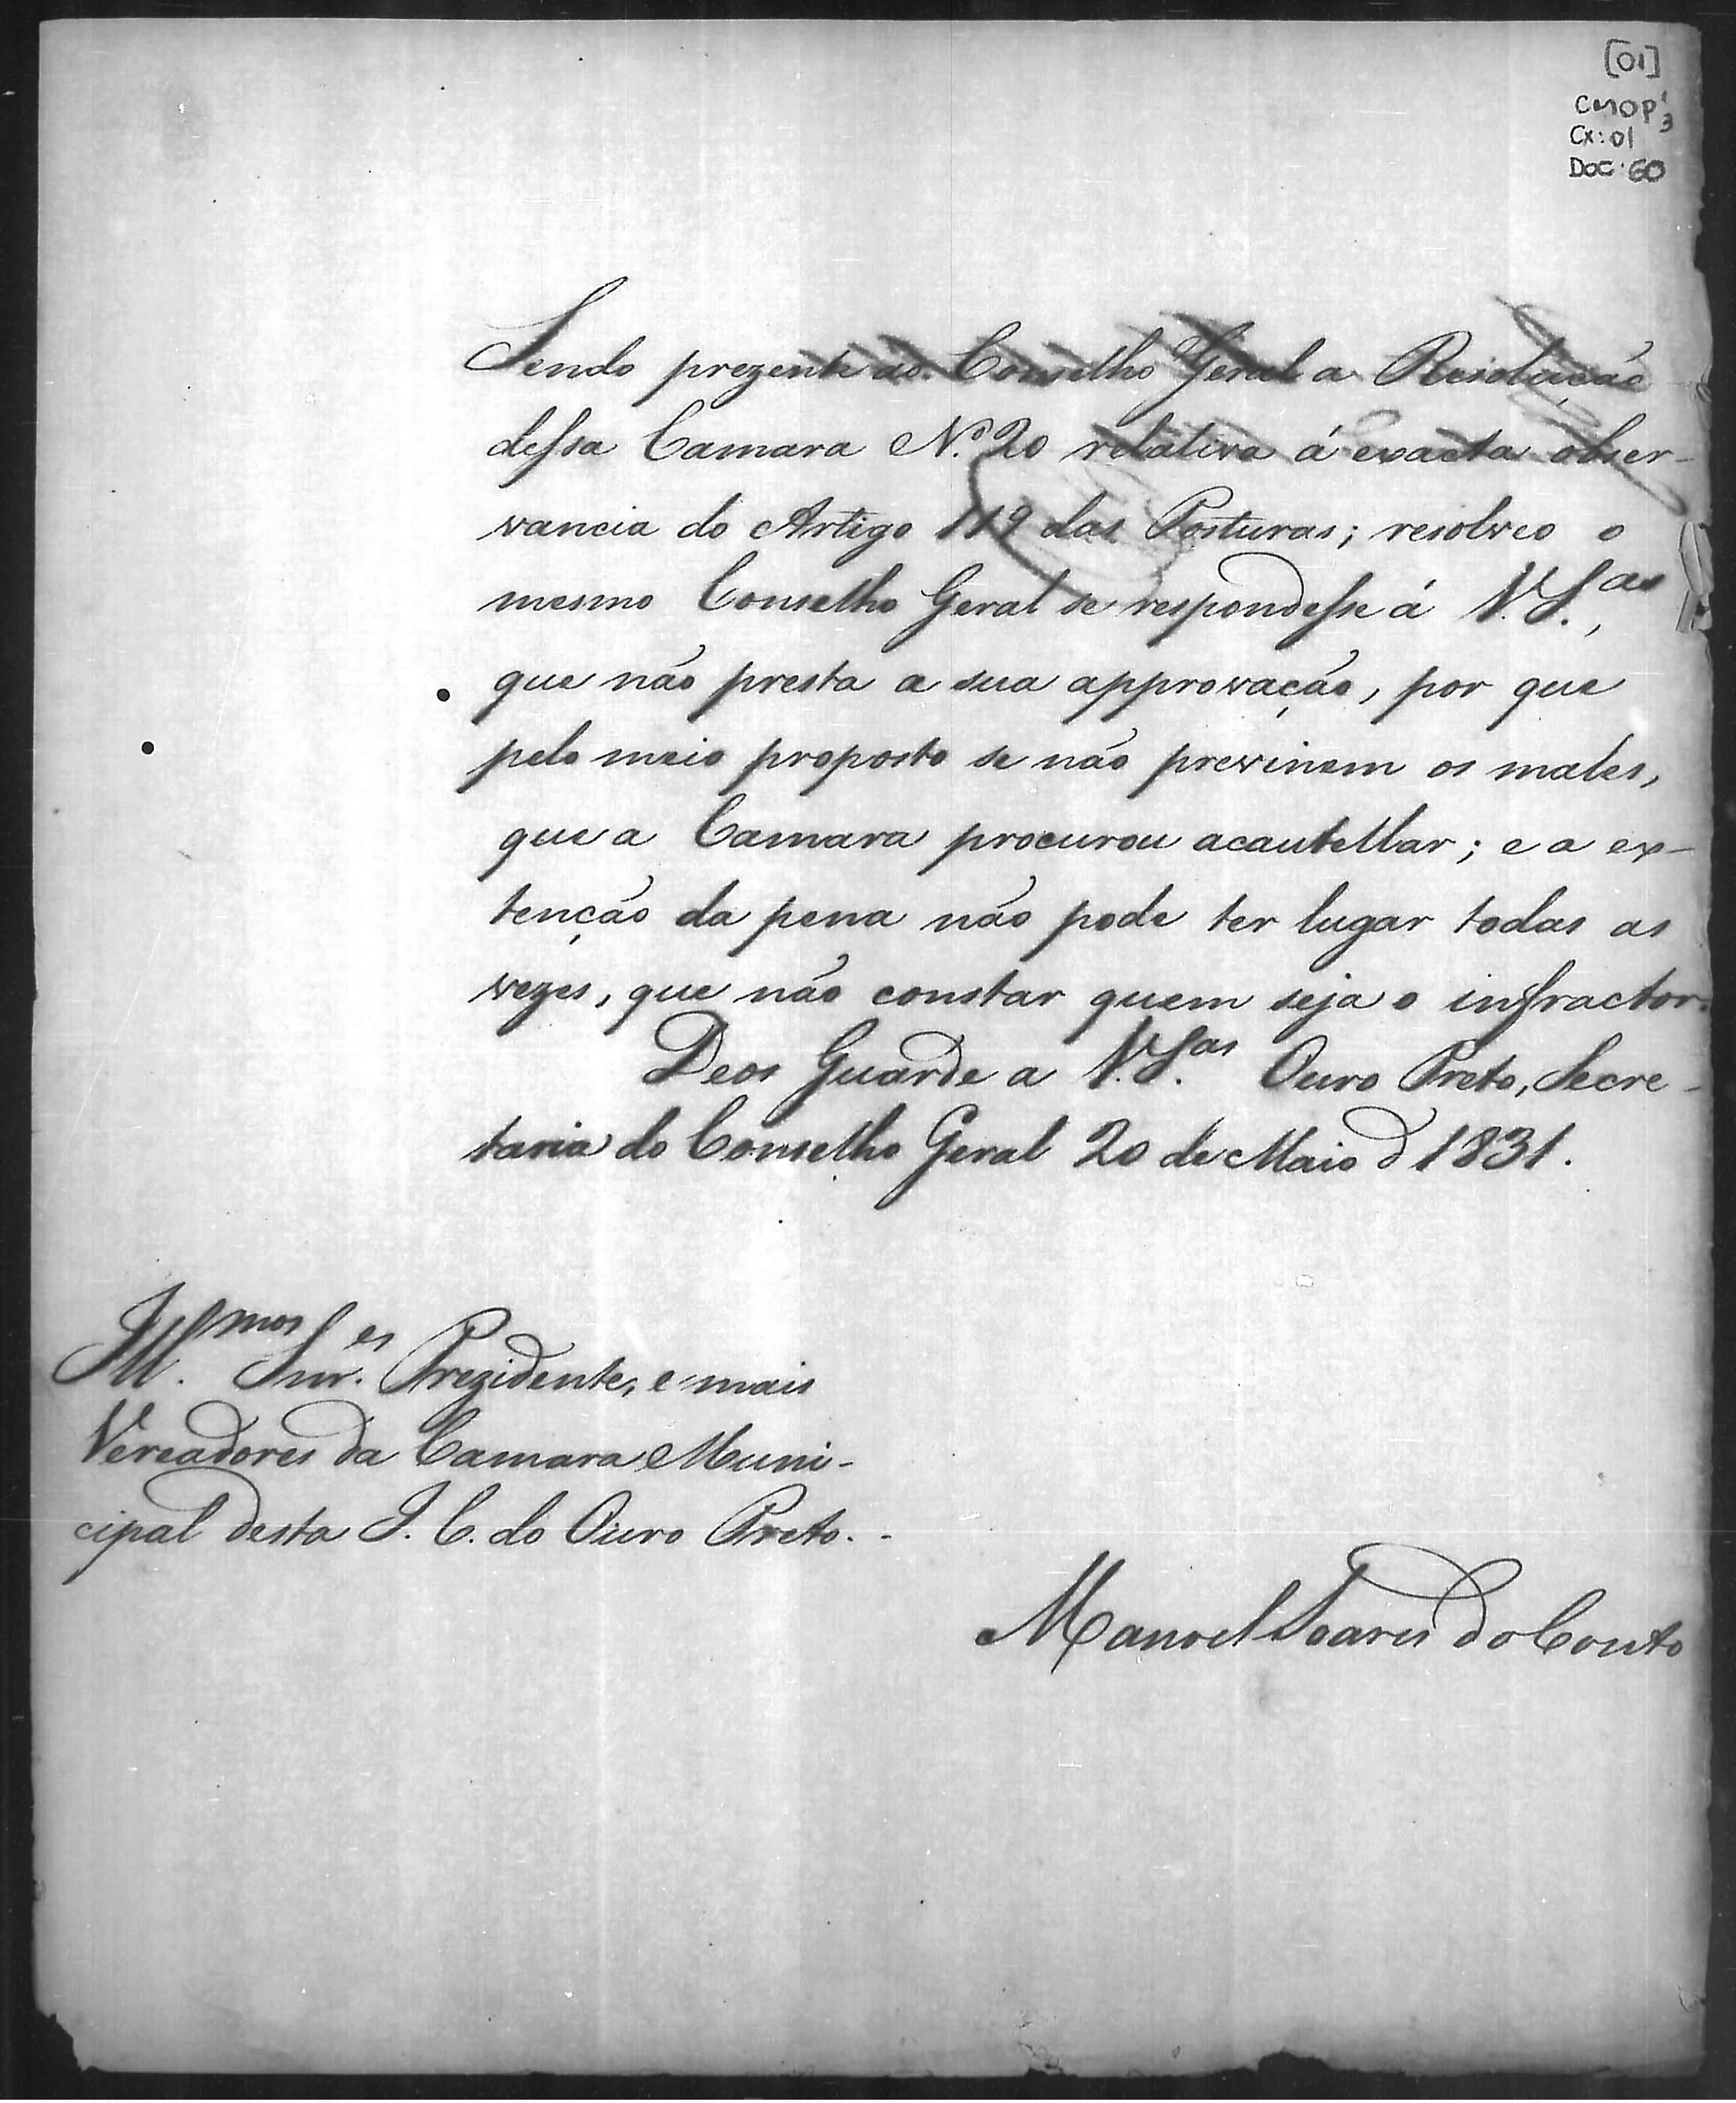 [01]
CMOP 1/3
Cx: 01
Doc: 60
Sendo prezente ao Conselho Geral a Resolução
dessa Camara N.º 20 relativa á exacta obser-
vancia do Artigo 119 das Posturas; resolveo o
mesmo Conselho Geral se respondesse á V. S.as,
que não presta a sua approvação, por que
pelo meio proposto se não previnem os males,
que a Camara procurou acautellar; e a ex-
tenção da pena não pode ter lugar todas as
vezes, que não constar quem seja o infractor.
Deos Guarde a V. S.as Ouro Preto, Secre-
taria do Conselho Geral 20 de Maio d 1831.
Ill.mos Snr.es Prezidente, e mais
Vereadores da Camara Muni-
cipal desta I. C. do Ouro Preto.
Manoel Soares do Couto